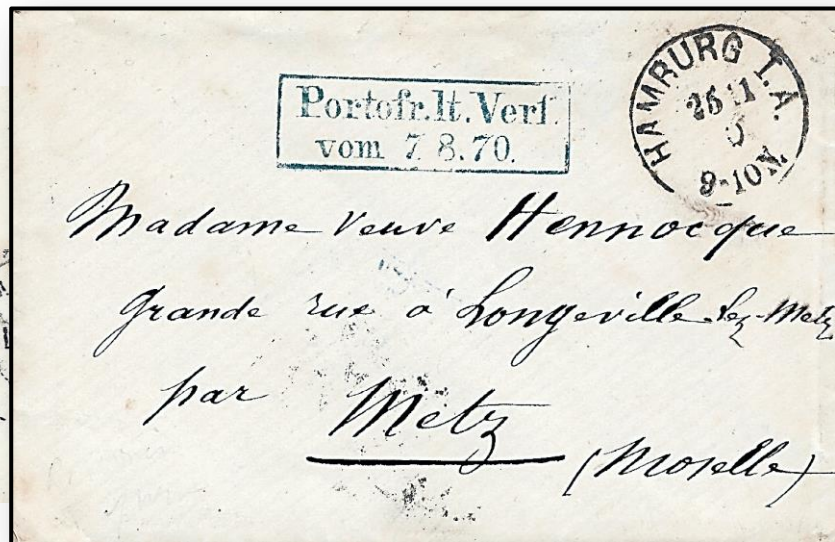 Portofr.lt.Verf.
vom 7.8.70.
HAMBURG I.A.
9-10N.
Madame Veuve Hennocque
Grande rue à Longeville-lez-Metz
par Metz
(Moselle)